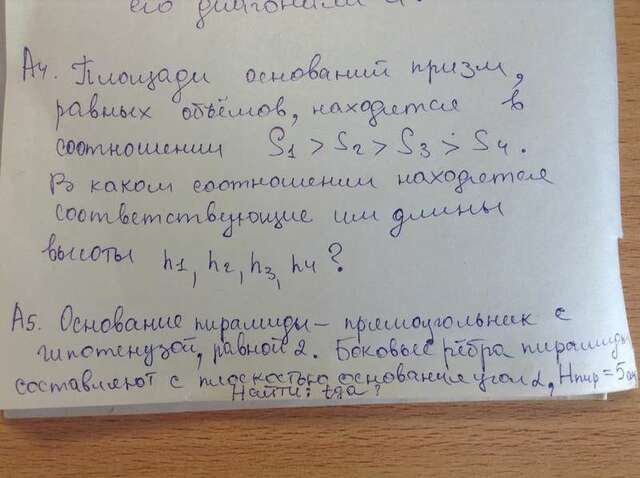 его диагонали d.
А4. Площади оснований призм,
равных объёмов, находятся в
соотношении S1 > S2 > S3 > S4.
В каком соотношении находятся
соответствующие им длины
высоты h1, h2, h3, h4?
А5. Основание пирамиды – прямоугольник с
гипотенузой, равной 2. Боковые рёбра пирамиды
составляют с плоскостью основание угол α, Hпир = 5 см
Найти: tgα?